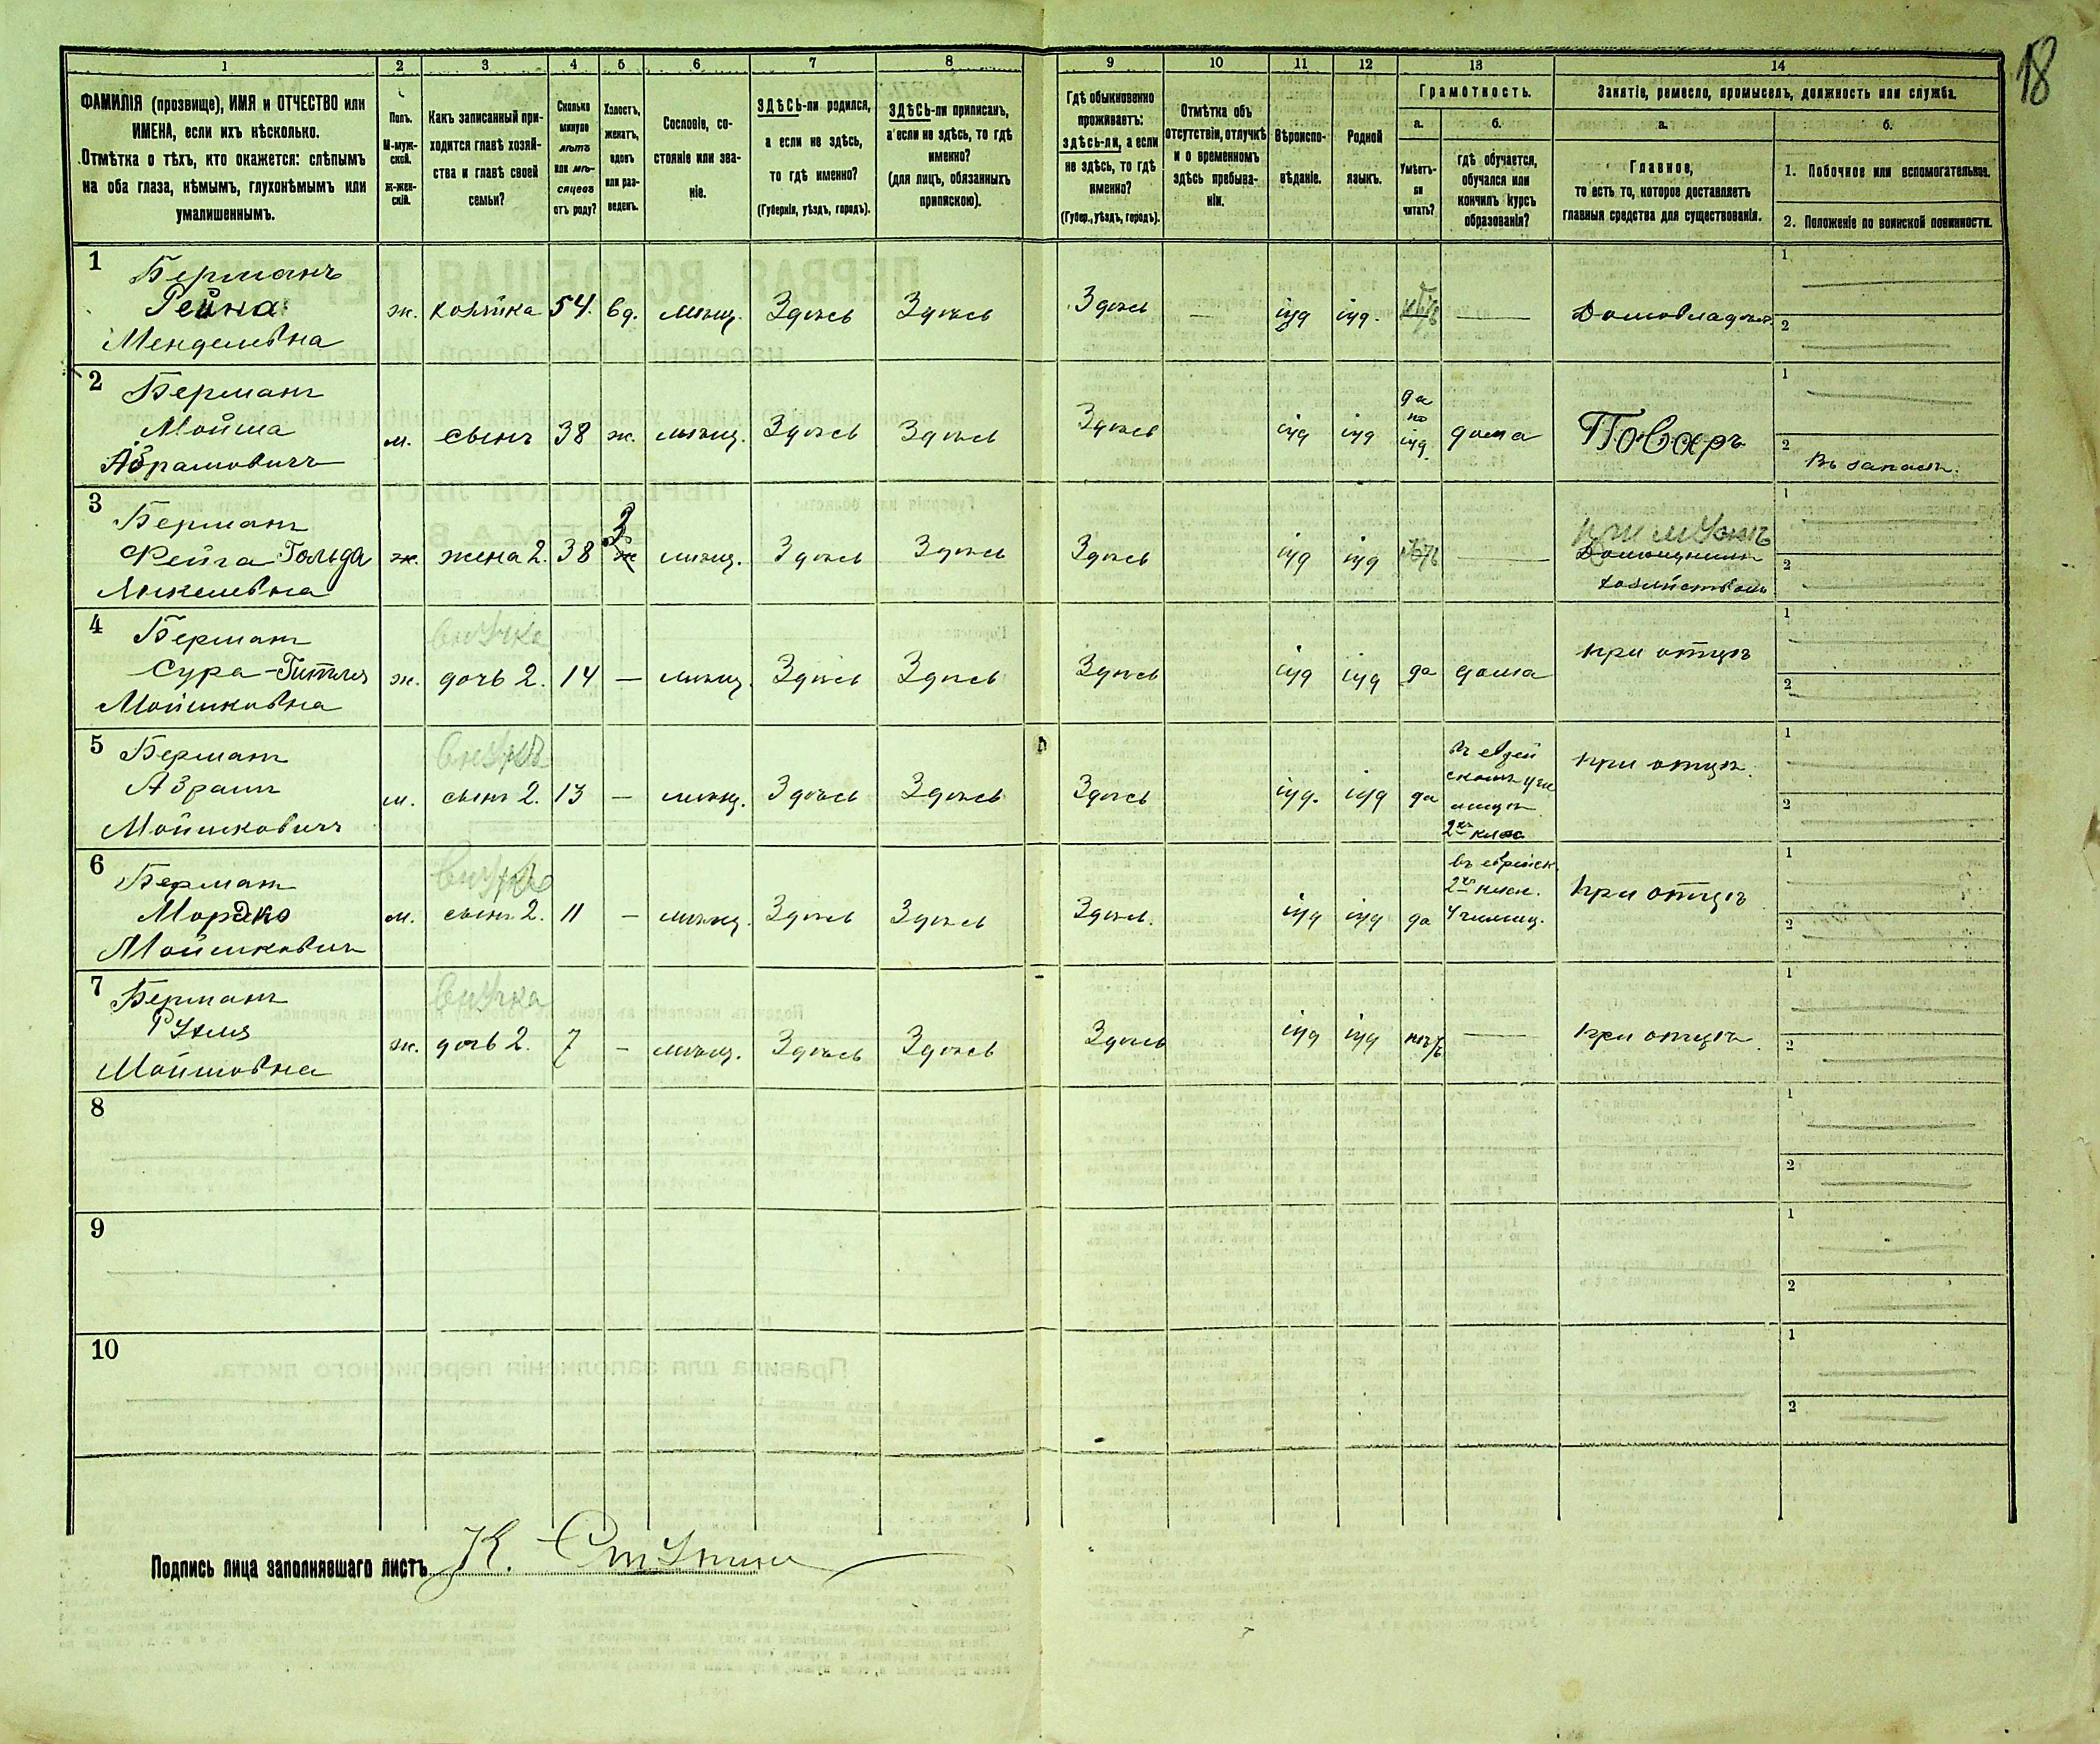 18
1 2 3 4 5 6 7 8 9 10 11 12 13 14
ФАМИЛІЯ (прозвище), ИМЯ и ОТЧЕСТВО или
ИМЕНА, если ихъ нѣсколько.
Отмѣтка о тѣхъ, кто окажется: слѣпымъ
на оба глаза, нѣмымъ, глухонѣмымъ или
умалишеннымъ.
Полъ.
М-муж-
ской.
ж-жен-
скій.
Какъ записанный при-
ходится главѣ хозяй-
ства и главѣ своей
семьи?
Сколько
минуло
лѣтъ
или мѣ-
сяцевъ
отъ роду?
Холостъ,
женатъ,
вдовъ
или раз-
веденъ.
Сословіе, со-
стояніе или зва-
ніе.
ЗДѢСЬ-ли родился,
а если не здѣсь,
то гдѣ именно?
(Губернія, уѣздъ, городъ).
ЗДѢСЬ-ли приписанъ,
а если не здѣсь, то гдѣ
именно?
(для лицъ, обязанныхъ
припискою).
Гдѣ обыкновенно
проживаетъ:
здѣсь-ли, а если
не здѣсь, то гдѣ
именно?
(Губер., уѣздъ, городъ).
Отмѣтка объ
отсутствіи, отлучкѣ
и о временномъ
здѣсь пребыва-
ніи.
Вѣроиспо-
вѣданіе.
Родной
языкъ.
Грамотность.
а.
Умѣетъ-
ли
читать?
б.
гдѣ обучается,
обучался или
кончилъ курсъ
образованія?
Занятіе, ремесло, промыселъ, должность или служба.
а.
Главное,
то есть то, которое доставляетъ
главныя средства для существованія.
б.
1. Побочное или вспомогательное.
2. Положеніе по воинской повинности.
1 Берманъ
Рейна
Менделевна
ж. хозяйка 54. вд. мѣщ. Здѣсь Здѣсь Здѣсь — іуд іуд. нѣтъ — Домовладѣл.
1
2
2 Берманъ
Мойша
Абрамовичъ
м. сынъ 38 ж. мѣщ. Здѣсь Здѣсь Здѣсь іуд іуд
да
по
іуд.
дома Поваръ
1
2 Въ запасѣ.
3 Берманъ
Фейга Гольда
ж. жена 2. 38 З ж мѣщ. Здѣсь Здѣсь Здѣсь іуд іуд нѣтъ —
при мужѣ
Домашнимъ
хозяйствомъ
1
2
4 Берманъ
Сура-Гитля
Мойшковна
внучка
ж. дочь 2. 14 — мѣщ. Здѣсь Здѣсь Здѣсь іуд іуд да дома при отцѣ
1
2
5 Берманъ
Абрамъ
Мойшковичъ
внукъ
м. сынъ 2. 13 — мѣщ. Здѣсь Здѣсь Здѣсь іуд. іуд да
2хъ клас
при отцѣ.
1
2
6 Берманъ
Мордко
Мойшкович
внукъ
м. сынъ 2. 11 — мѣщ. Здѣсь Здѣсь Здѣсь. іуд іуд да
въ еврейск.
2хъ клас.
Училищ.
при отцѣ
1
2
7 Берманъ
Мойшовна
внучка
ж. дочь 2. 7 — мѣщ. Здѣсь Здѣсь Здѣсь іуд іуд нѣтъ — при отцѣ
1
2
8
1
2
9
1
2
10
1
2
Подпись лица заполнявшаго листъ К.